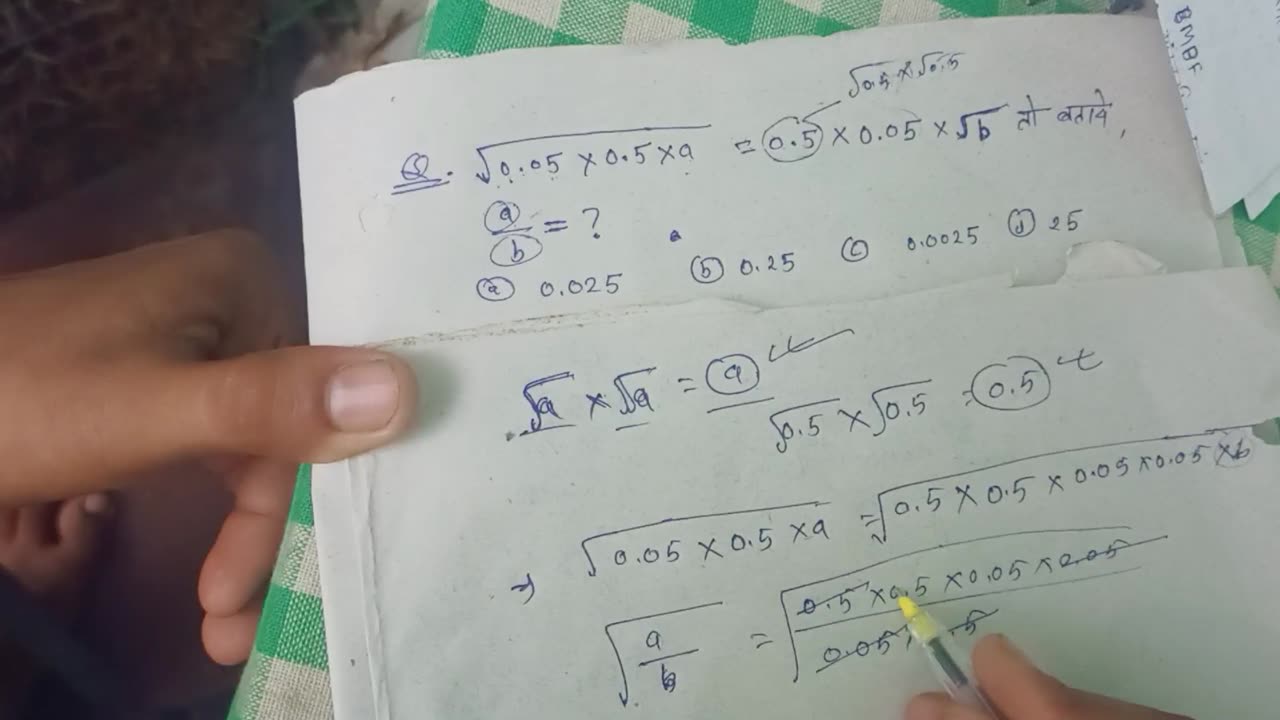 √0.5 × √0.5
Q. √0.05 × 0.5 × a = 0.5 × 0.05 × √b तो बतावे,
a/b = ?
ⓐ 0.025 ⓑ 0.25 ⓒ 0.0025 ⓓ 25
√a × √a = a
√0.5 × √0.5 = 0.5
⇒ √0.05 × 0.5 × a = √0.5 × 0.5 × 0.05 × 0.05 × b
√a/b = √0.5 × 0.5 × 0.05 × 0.05 / 0.05
BMBF